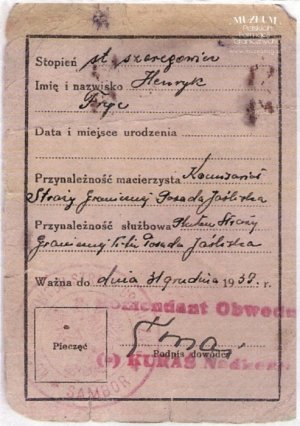 MUZEUM
Polskich
Formacji
Granicznych
Stopień st. szeregowiec
Henryk
Imię i nazwisko
Fryc
Data i miejsce urodzenia
Przynależność macierzysta Komisariat
Straży Granicznej Posada Jaśliska
Przynależność służbowa Pluton Straży
Granicznej Posada Jaśliska
Ważna do dnia 31 grudnia 1939. r.
Komendant Obwodu
Pieczęć
Podpis dowódcy
(-) KURAS Nadkom.
SAMBOR